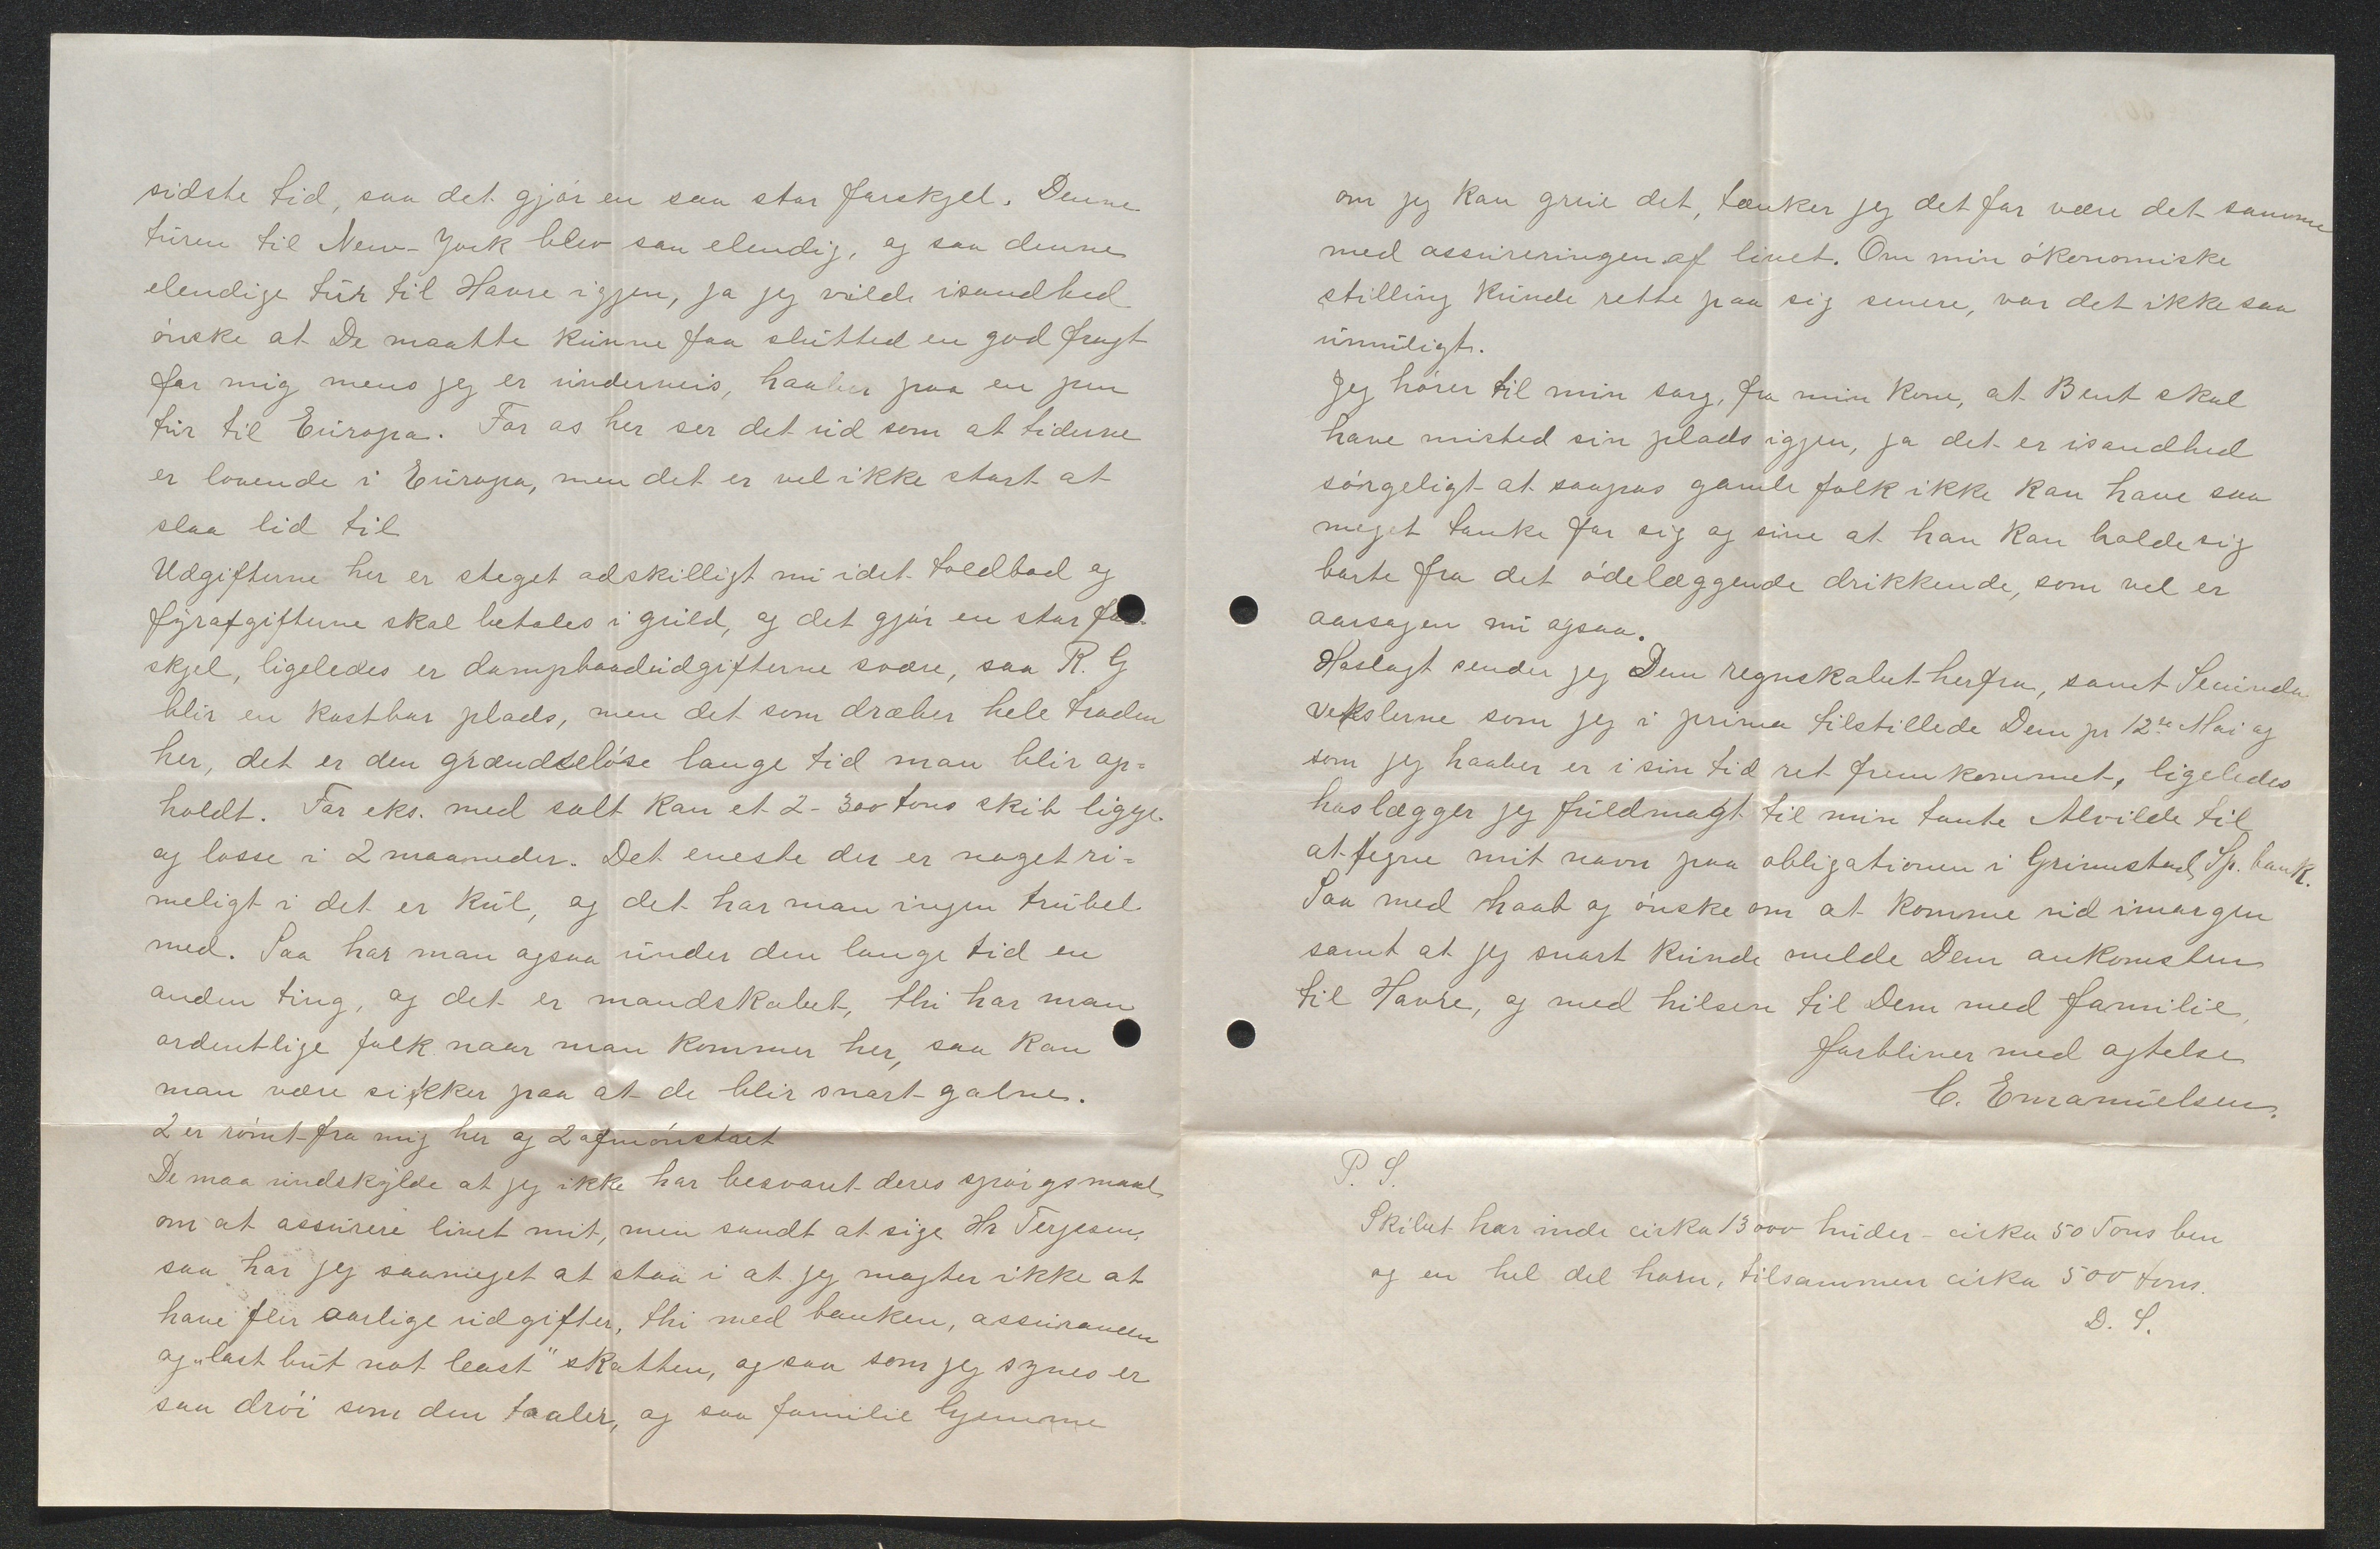 sidste tid, saa det gjør en saa stor forskjel. Denne
turen til New-York blev saa elendig, og saa denne
elendige tur til Havre igjen, ja jeg vilde isandhed
ønske at De maatte kunne faa slutted en god fragt
for mig mens jeg er underveis, haaber paa en pen
tur til Europa. For os her ser det ud som at tiderne
er lovende i Europa, men det er vel ikke stort at
slaa lid til
Udgifterne her er steget adskilligt nu idet toldbod og
fyrafgifterne skal betales i guld, og det gjør en stor for-
skjel, ligeledes er dampbaadudgifterne svære, saa R. G
blir en kostbar plads, men det som dræber hele traden
her, det er den grændseløse lange tid man blir op=
holdt. For eks. med salt kan et 2-300 tons skib ligge
og losse i 2 maaneder. Det eneste der er noget ri=
meligt i det er kul, og det har man ingen trubel
med. Saa har man ogsaa under den lange tid en
anden ting, og det er mandskabet, thi har man
ordentlige folk naar man kommer her, saa kan
man være sikker paa at de blir snart galne.
2 er rømt fra mig her og 2 afmønstret
De maa undskylde at jeg ikke har besvaret deres spørgsmaal
om at assurere livet mit, men sandt at sige Hr Terjesen,
saa har jeg saameget at staa i at jeg magter ikke at
have fler aarlige udgifter, thi med banken, assurancen
og „last but not least" skatten, og saa som jeg synes er
saa drøi som den taaler, og saa familie hjemme
om jeg kan greie det, tænker jeg det far være det samme
med assureringen af livet. Om min økonomiske
stilling kunde rette paa sig senere, var det ikke saa
umuligt.
Jeg hører til min sorg, fra min kone, at Bent skal
have misted sin plads igjen, ja det er isandhed
sørgeligt at saapas gamle folk ikke kan have saa
meget tanke for sig og sine at han kan holde sig
borte fra det ødelæggende drikkende, som vel er
aarsagen nu ogsaa.
Hoslagt sender jeg Dem regnskabet herfra, samt Secunda
vekslerne som jeg i prima tilstillede Dem pr 12te Mai og
som jeg haaber er i sin tid ret fremkommet, ligeledes
hoslægger jeg fuldmagt til min tante Alvilde til
at tegne mit navn paa obligationen i Grimstad Sp. bank.
Saa med haab og ønske om at komme ud imorgen
samt at jeg snart kunde melde Dem ankomsten
til Havre, og med hilsen til Dem med familie,
forbliver med agtelse
C. Emanuelsen.
P. S.
Skibet har inde cirka 13000 huder - cirka 50 Tons ben
og en hel del horn, tilsammen cirka 500 tons.
D. S.